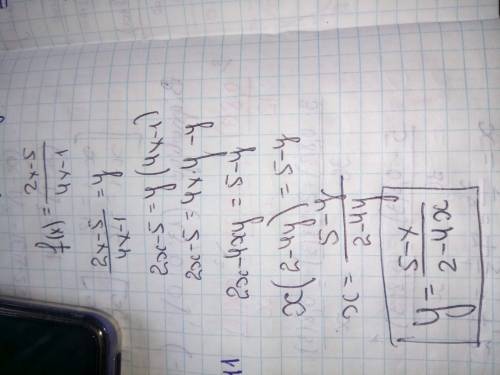 f(x) = \frac{2x-5}{4x-1}
\frac{2x-5}{4x-1} = y
2x-5 = y(4x-1)
2x-5 = 4x·y-y
2x-4xy = 5-y
x(2-4y) = 5-y
x = \frac{5-y}{2-4y}
y = \frac{5-x}{2-4x}
11